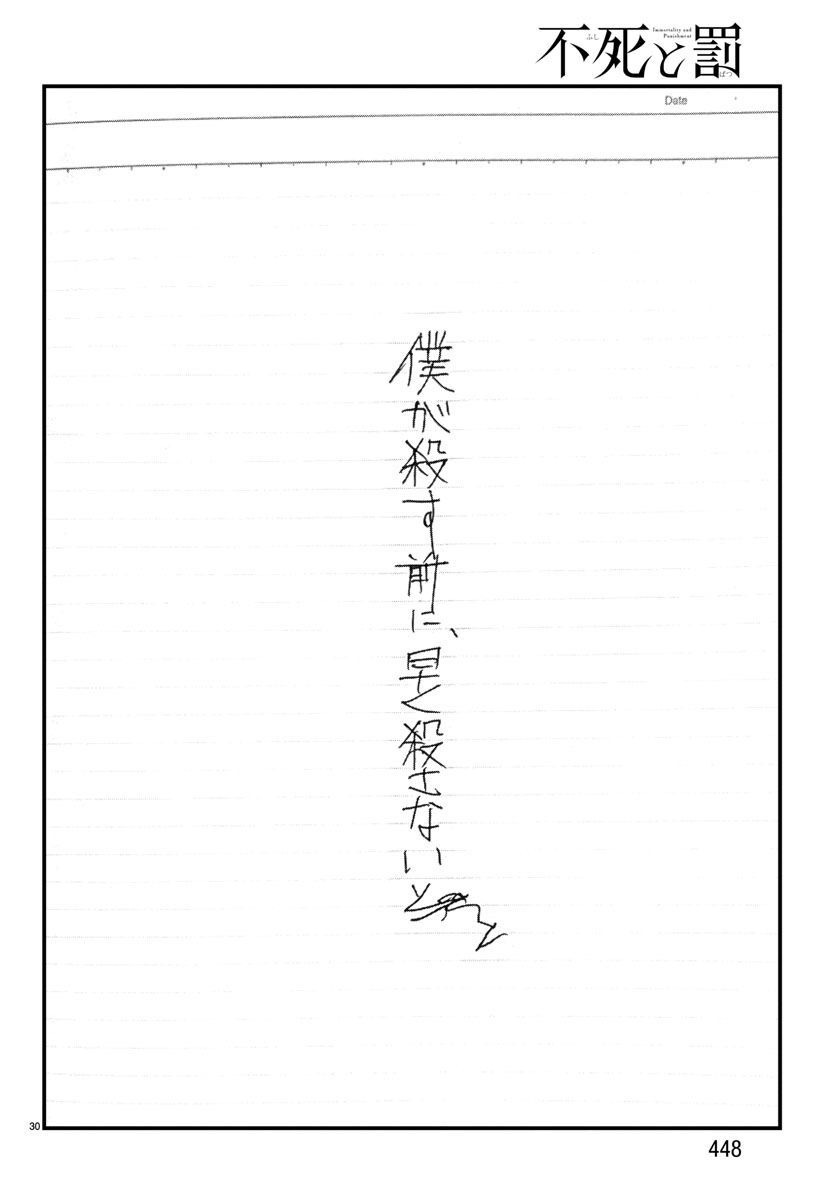 不死と罰
ふし
ばつ
Immortality and
Punishment
Date
僕が殺す前に、早く殺さないと
30
448